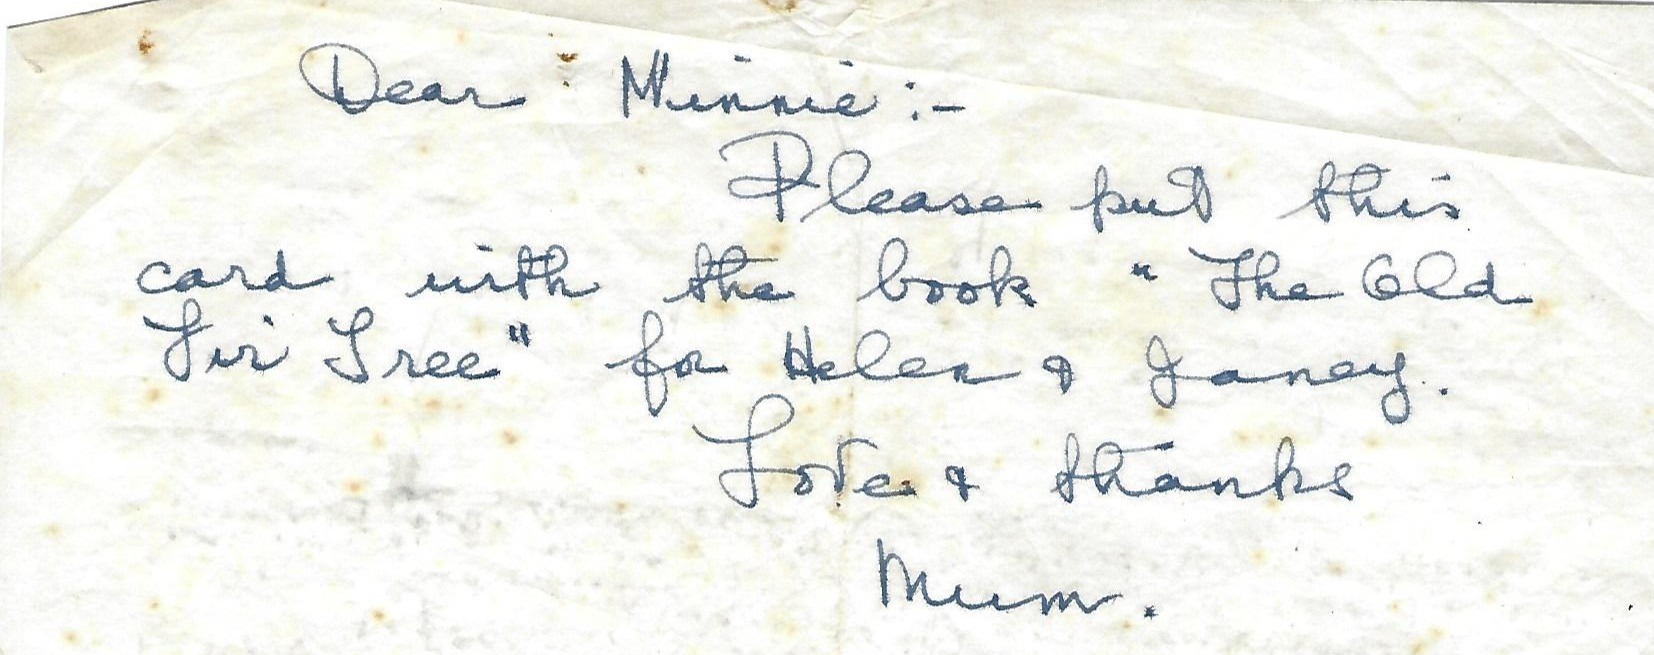 Dear Minnie:-
Please put this
card with the book "The Old
Fir Tree" for Helen & Janey.
Love & thanks
Mum.